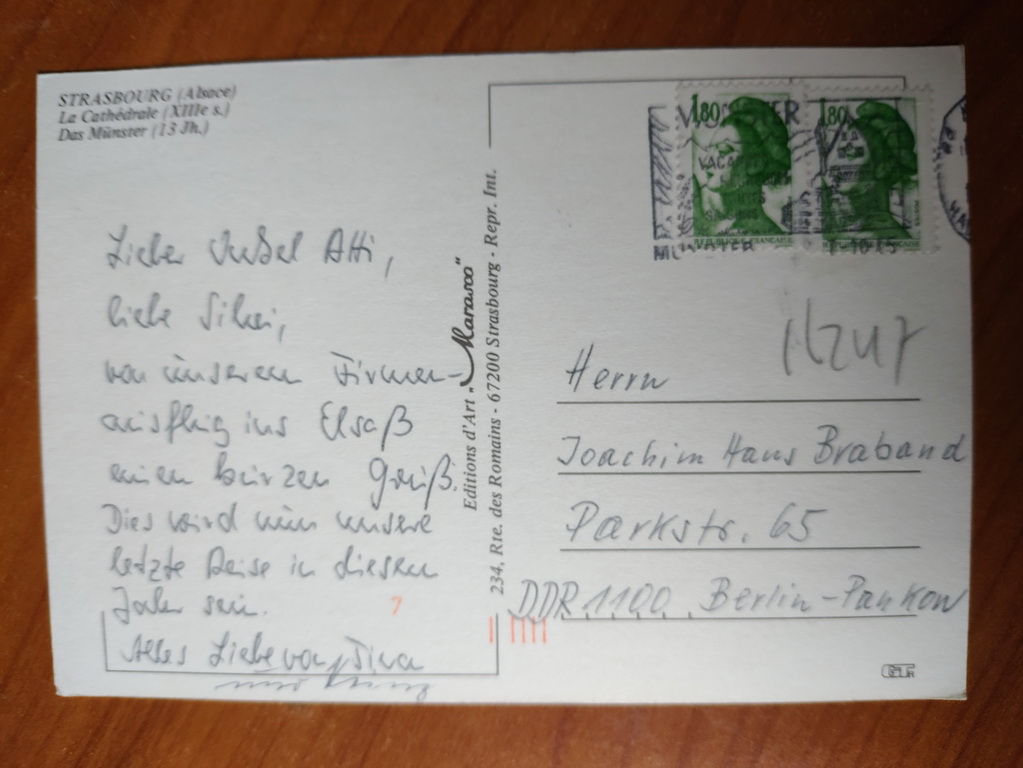 STRASBOURG (Alsace)
La Cathédrale (XIIIe s.)
Das Münster (13 Jh.)
Lieber Onkel Atti,
liebe Silvi,
von unserem Firmen-
ausflug ins Elsaß
einen kurzen Gruß.
Dies wird nun unsere
letzte Reise in diesem
Jahr sein.
Alles Liebe von
und
Editions d'Art "Marasco"
234, Rte. des Romains - 67200 Strasbourg - Repr. Int.
1,80 1,80
MUNSTER
Herrn
Joachim Hans Braband
Parkstr. 65
DDR 1100 Berlin-Pankow